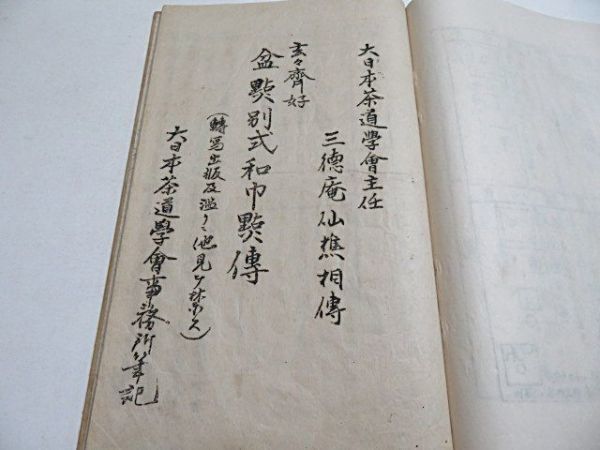 大日本茶道學會主任
三德庵仙樵相傳
玄々齋好
盆㸃別式和巾㸃傳
(轉寫出版及濫リニ他見ヲ禁ス)
大日本茶道學會事務所筆記